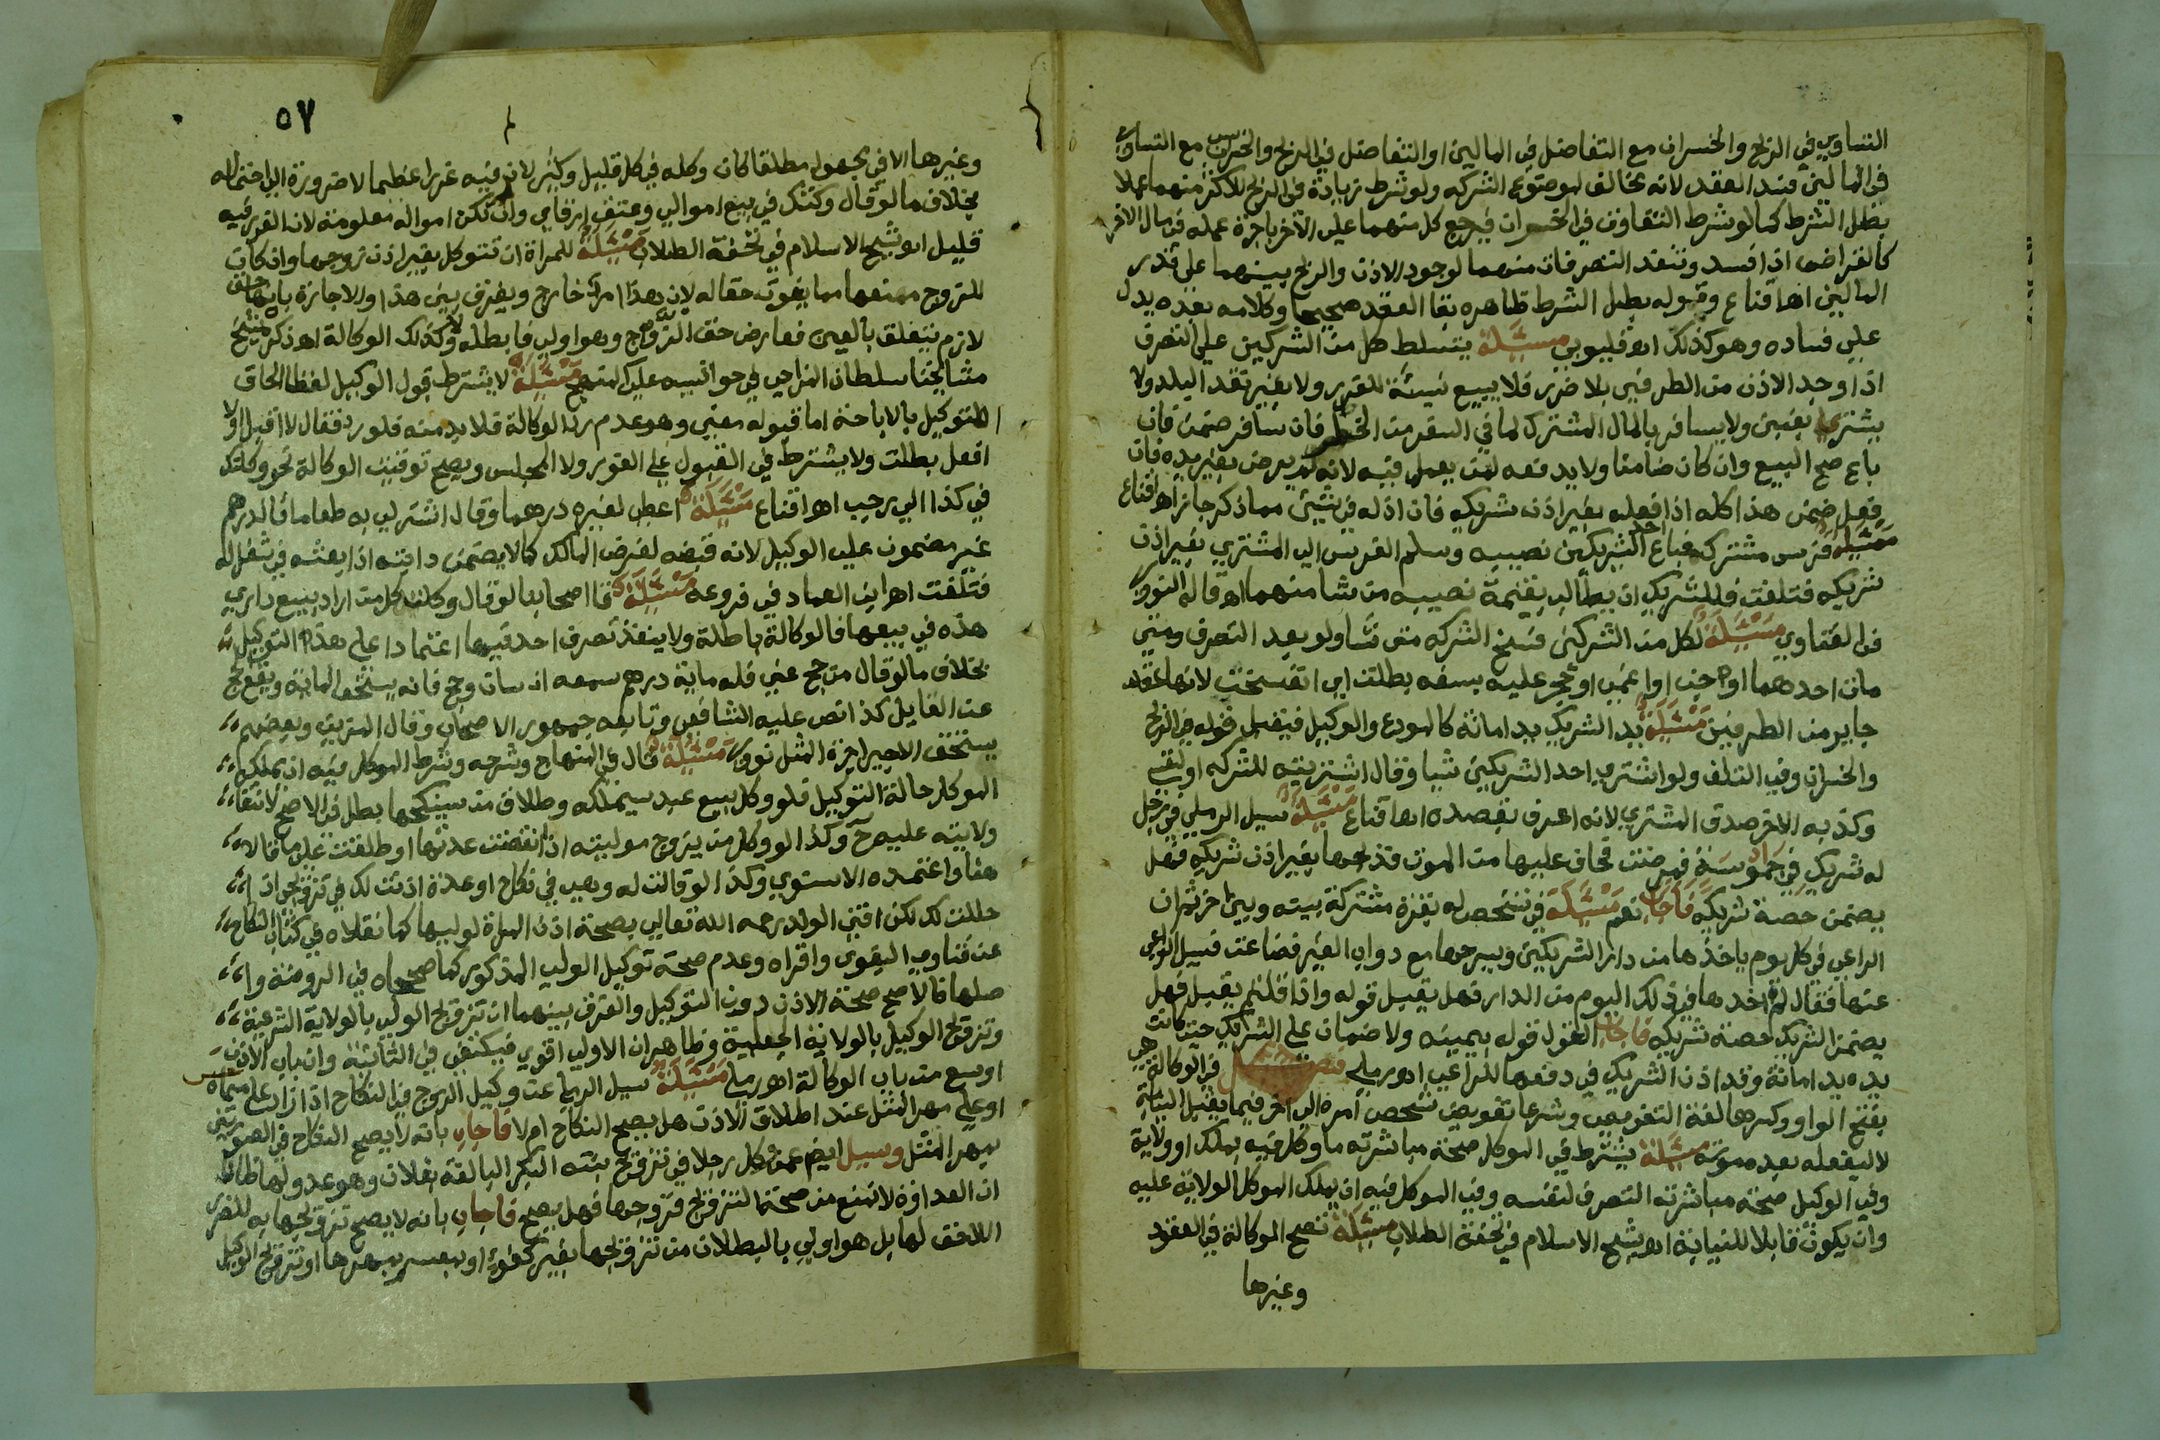 التساوي في الربح والخسران مع التفاضل في المالين او التفاضل في الربح والخسران مع التساوي
في المالين فسد العقد لانه مخالف لموضوع الشركه ولو شرط زيادة في الربح للاكثر منهما عملا
بطل الشرط كما لو شرط التفاوت في الخسران فيرجع كل منهما علي الاخر باجرة عمله في مال الاخر
كالقراض اذا فسد وتنفذ التصرفات منهما لوجود الاذن والربح بينهما علي قدر
المالين اهـ اقناع وقوله بطل الشرط ظاهره بقا العقد صحيحا وكلامه بعده يدل
علي فساده وهو كذلك اهـ قليوبي مسئلة يتسلط كل من الشركين علي التصرف
اذا وجد الاذن من الطرفين بلا ضرر فلا يبيع نسيئة للغرر ولا بغير نقد البلد ولا
يشتري بغبن ولا يسافر بالمال المشترك لما في السفر من الخطر فان سافر ضمن فان
باع صح البيع وان كان ضامنا ولا يدفعه لمن يعمل فيه لانه لم يرض بغير يده فان
فعل ضمن هذا كله اذا فعله بغير اذن شريكه فان اذن له في شيئ مما ذكر جاز اهـ اقناع
مسئلة فرس مشتركه فباع احد الشريكين نصيبه وسلم الفرس الي المشتري بغير اذن
شريكه فتلفت فللشريك ان يطالب بقيمة نصيبه من شا منهما اهـ قاله النووي
في الفتاوي مسئلة لكل من الشركين فسخ الشركه متى شا ولو بعد التصرف ومتى
مات احدهما او جن او اغمي او حجر عليه بسفه بطلت اي انفسخت لانها عقد
جايز من الطرفين مسئلة يد الشريك يد امانة كالمودع والوكيل فيقبل قوله في الربح
والخسران وفي التلف ولو اشتري احد الشريكين شيا وقال اشتريته للشركه او لنفسي
وكذبه الاخر صدق المشتري لانه اعرف بقصده اهـ اقناع مسئلة سيل الرملي في رجل
له شريك في جاموسة فمرضت فخاف عليها من الموت فذبحها بغير اذن شريكه فهل
يضمن حصة شريكه فاجاب نعم مسئلة في شخص له بقرة مشتركة بينه وبين اخر ثم ان
الراعي في كل يوم ياخذها من دار الشريكين ويسرحها مع دواب الغير فضاعت فسيل الراعي
عنها فقال لم اخذها في ذلك اليوم من الدار فهل يقبل قوله واذا قلتم يقبل فهل
يضمن الشريك حصة شريكه فاجاب القول قوله بيمينه ولا ضمان علي الشريك حيث كانت
يده يد امانة وقد اذن الشريك في دفعها للراعي اهـ رملي فصل في الوكالة هي
بفتح الواو وكسرها لغة التفويض وشرعا تفويض شخص امره الي اخر فيما يقبل النيابة
لا ليفعله بعد موته مسئلة يشترط في الموكل صحة مباشرته ما وكل فيه بملك او ولاية
وفي الوكيل صحة مباشرته التصرف لنفسه وفي الموكل فيه ان يملك الموكل الولاية عليه
وان يكون قابلا للنيابة اهـ شيخ الاسلام في تحفة الطلاب مسئلة تصح الوكالة في العقود
وغيرها
٥٧
وغيرها لا في مجهول مطلقا كان وكله في كل قليل وكثير لان فيه غررا عظيما لا ضرورة الي احتماله
بخلاف ما لو قال وكلتك في بيع اموالي وعتق ارقاي وان لم تكن امواله معلومة لان الغرر فيه
قليل اهـ شيخ الاسلام في تحفة الطلاب مسئلة للمراة ان تتوكل بغير اذن زوجها وان كان
للزوج منعها مما يفوت حقا له لان هذا امر خارج ويفرق بين هذا والاجارة بانها حق
لازم يتعلق بالعين فعارض حق الزوج وهو اولي فابطله ولا كذلك الوكالة اهـ ذكره شيخ
مشايخنا سلطان المزاحي في حواشيه علي المنهج مسئلة لا يشترط قبول الوكيل لفظا الحاقا
للتوكيل بالاباحة اما قبوله معني وهو عدم رد الوكالة فلا بد منه فلو رد فقال لا اقبل او لا
افعل بطلت ولا يشترط في القبول علي الفور ولا المجلس ويصح توقيت الوكالة نحو وكلتك
في كذا الي رجب اهـ اقناع مسئلة اعطي لغيره درهما وقال اشتر لي به طعاما فالدرهم
غير مضمون علي الوكيل لانه قبضه لغرض المالك كما لا يضمن دابته اذا بعثه في شغل له
فتلفت اهـ ابن العماد في فروعه مسئلة قال اصحابنا لو قال وكلت كل من اراد بيع داري
هذه في بيعها فالوكالة باطلة ولا ينفذ تصرف احد فيها اعتمادا علي هذا التوكيل
بخلاف ما لو قال من حج عني فله ماية درهم سمعه انسان وحج فانه يستحق الماية ويقع الحج
عن القايل كذا نص عليه الشافعي وتابعه جمهور الاصحاب وقال المزني وبعضهم
يستحق الاجير اجرة المثل نووي مسئلة قال في المنهاج وشرحه وشرط الموكل فيه ان يملكه
الموكل حالة التوكيل فلو وكل ببيع عبد سيملكه وطلاق من سينكحها بطل في الاصح لانتفاء
ولايته عليه ح وكذا لو وكل من يزوج موليته اذا انقضت عدتها او طلقت علي ما قالا
هنا واعتمده الاسنوي وكذا لو قالت له وهي في نكاح او عدة اذنت لك في تزويجي اذا
حللت لك لكن افتي الوالد رحمه الله تعالي بصحة اذن المراة لوليها كما نقلاه في كتاب النكاح
عن فتاوي البغوي واقراه وعدم صحة توكيل الولي المذكور كما صححاه في الروضة وا
صلها فالاصح صحة الاذن دون التوكيل والفرق بينهما ان تزويج الولي بالولاية الشرعية
وتزويج الوكيل بالولاية الجعلية وظاهر ان الاولي اقوي فيكتفي في الثانية وان باب الاذن
اوسع من باب الوكالة اهـ رملي مسئلة سيل الرملي عن وكيل الزوج في النكاح اذا زاد علي ما سماه
او علي مهر المثل عند اطلاق الاذن هل يصح النكاح ام لا فاجاب بانه لا يصح النكاح في الصورتين
بمهر المثل وسيل ايضا عمن وكل رجلا في تزويج بنته البكر البالغة بفلان وهو عدو لها ظانا
ان العداوة لا تمنع من صحة التزويج فزوجها فهل يصح فاجاب بانه لا يصح تزويجها به للضرر
اللاحق لها بل هو اولي بالبطلان من تزويجها بغير كفوء او بمعسر بمهرها او تزويج الوكيل